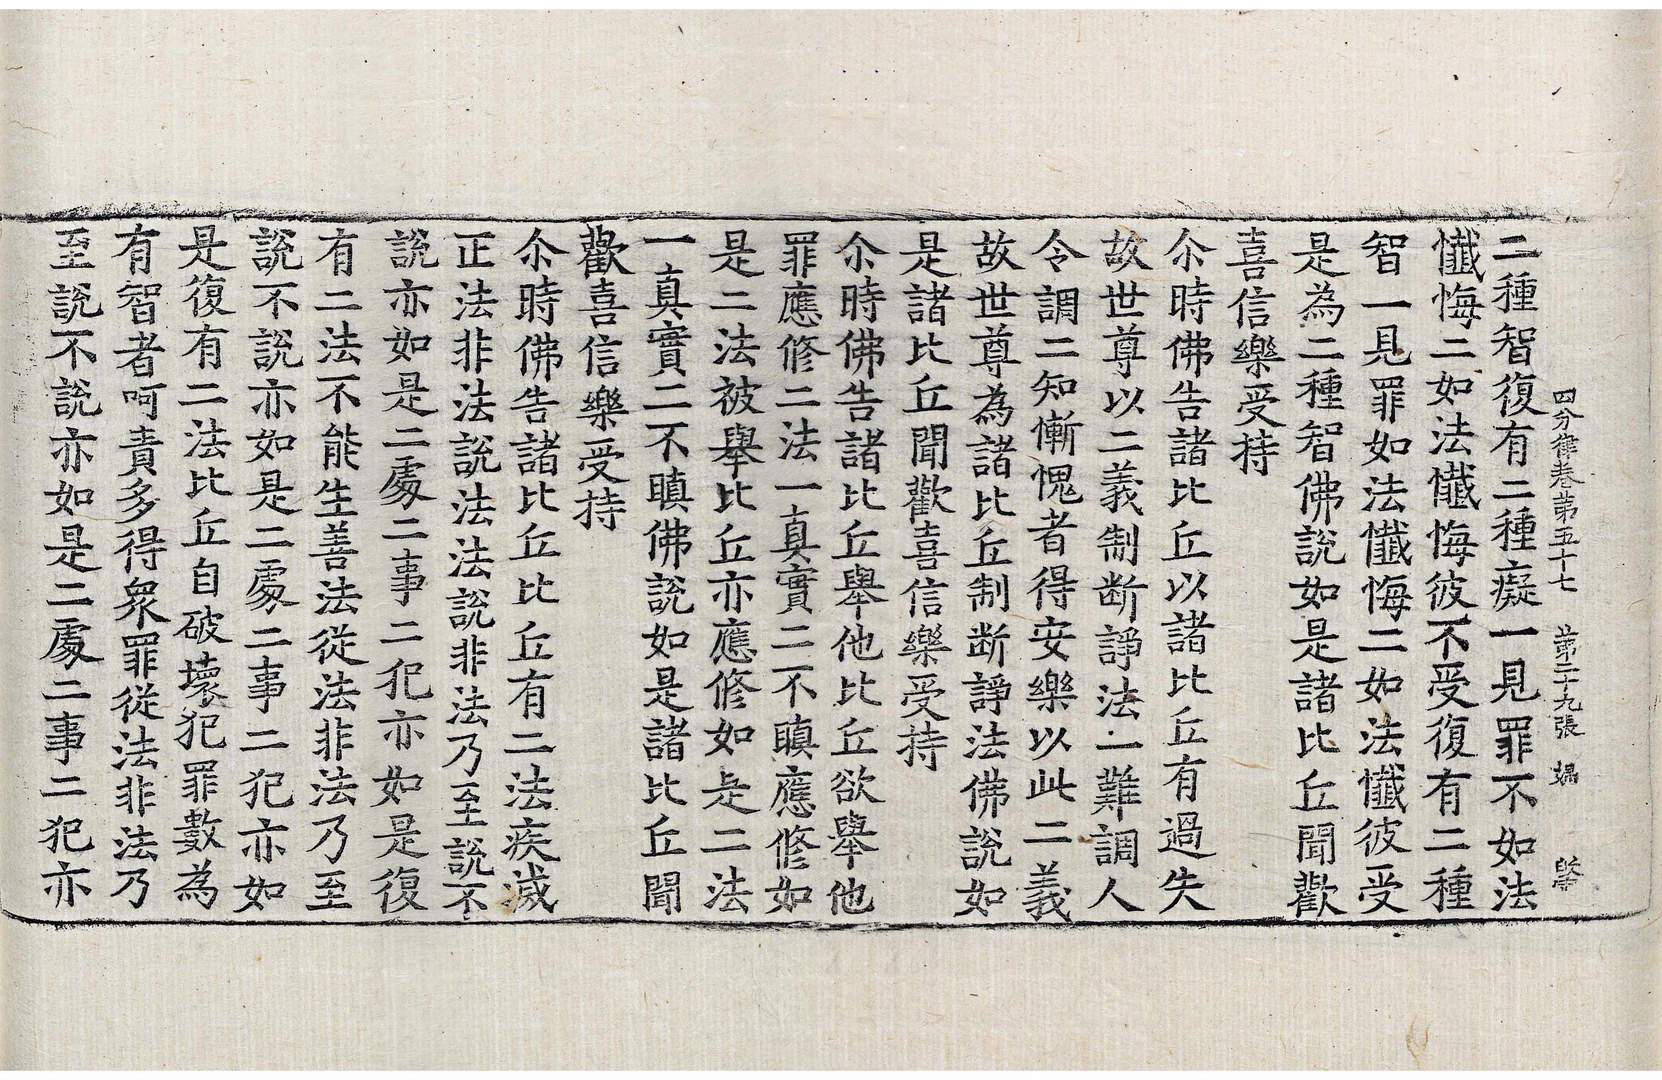 四分律卷第五十七 第二十九張 婦
二種智復有二種癡一見罪不如法
懺悔二如法懺悔彼不受復有二種
智一見罪如法懺悔二如法懺彼受
是為二種智佛說如是諸比丘聞歡
喜信樂受持
尒時佛告諸比丘以諸比丘有過失
故世尊以二義制断諍法一難調人
令調二知慚愧者得安樂以此二義
故世尊為諸比丘制断諍法佛說如
是諸比丘聞歡喜信樂受持
尒時佛告諸比丘舉他比丘欲舉他
罪應修二法一真實二不瞋應修如
是二法被舉比丘亦應修如是二法
一真實二不瞋佛說如是諸比丘聞
歡喜信樂受持
尒時佛告諸比丘比丘有二法疾滅
正法非法說法法說非法乃至說不
說亦如是二處二事二犯亦如是復
有二法不能生善法從法非法乃至
說不說亦如是二處二事二犯亦如
是復有二法比丘自破壞犯罪數為
有智者呵責多得衆罪從法非法乃
至說不說亦如是二處二事二犯亦